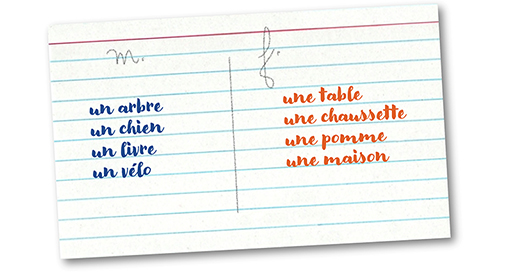 m.
un arbre
un chien
un livre
un vélo
f.
une table
une chaussette
une pomme
une maison